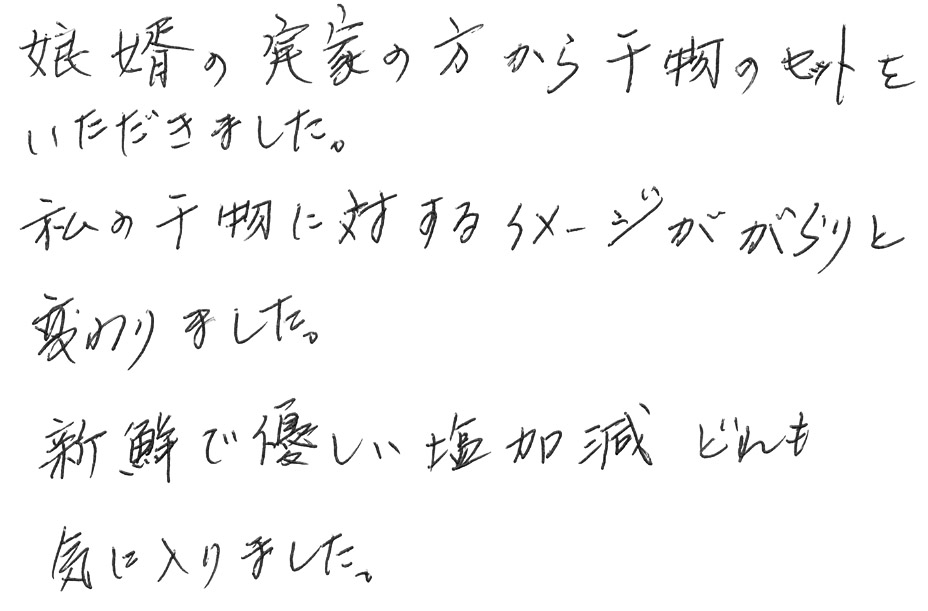 娘婿の実家の方から干物のセットを
いただきました。
私の干物に対するイメージががらりと
変わりました。
新鮮で優しい塩加減 どれも
気に入りました。